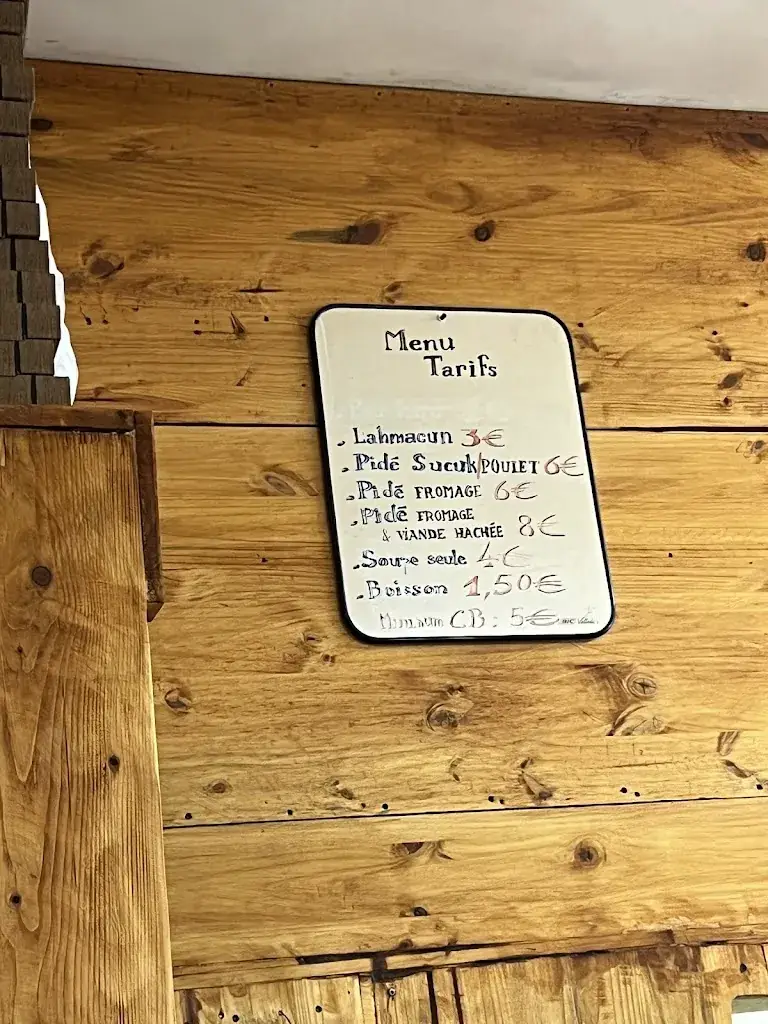 Menu
Tarifs
. Lahmacun 3€
. Pidé Sucuk/POULET 6€
. Pidé FROMAGE 6€
. Pidé FROMAGE
& VIANDE HACHÉE 8€
. Soupe seule 4€
. Boisson 1,50€
Minimum CB : 5€